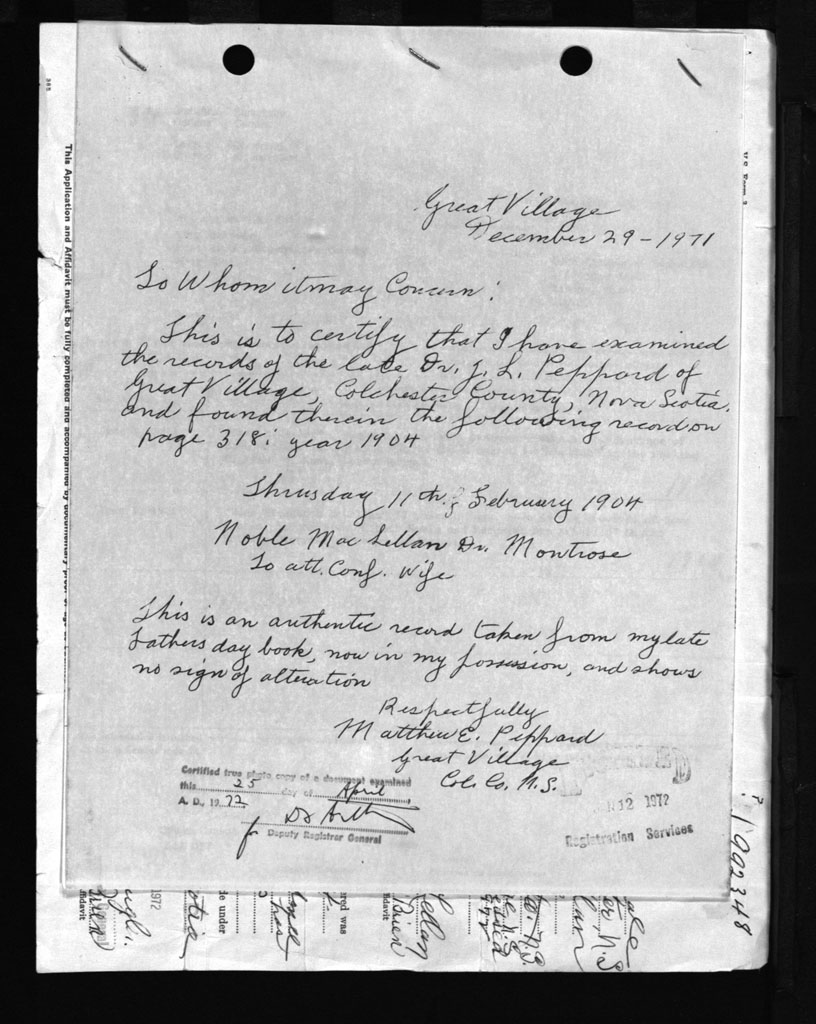 Great Village
December 29 - 1971
To Whom it may Concern:
This is to certify that I have examined
the records of the late Dr. J. L. Peppard of
Great Village, Colchester County, Nova Scotia,
and found therein the following record on
page 318; year 1904
Thrusday 11th; February 1904
Noble MacLellan Dr. Montrose
To att. Conf. Wife
This is an authentic record taken from my late
Fathers day book, now in my possession, and shows
no sign of alteration
Respectfully
Matthew E. Peppard
Great Village
Col. Co. N.S.
Certified true photo copy of a document examined
this 25 day of April
A. D., 1972
for
Deputy Registrar General
12 1972
Registration Services
This Application and Affidavit must be fully completed and accompanied by documentary proof
1902348
1972
de under
red was